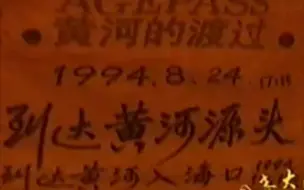 AGEPASS
黄河的渡过
1994.8.24
到达黄河源头
到达黄河入海口1994